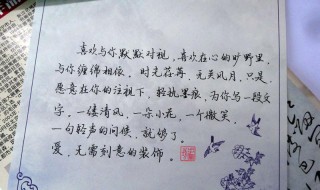 喜欢与你默默对视，喜欢在心的旷野里，
与你缠绵相依。时光荏苒，无关风月，只是
愿意在你的注视下，轻执墨痕，为你写一段文
字，一缕清风，一朵小花，一个微笑，
一句轻声的问候，就够了。
爱，无需刻意的装饰。